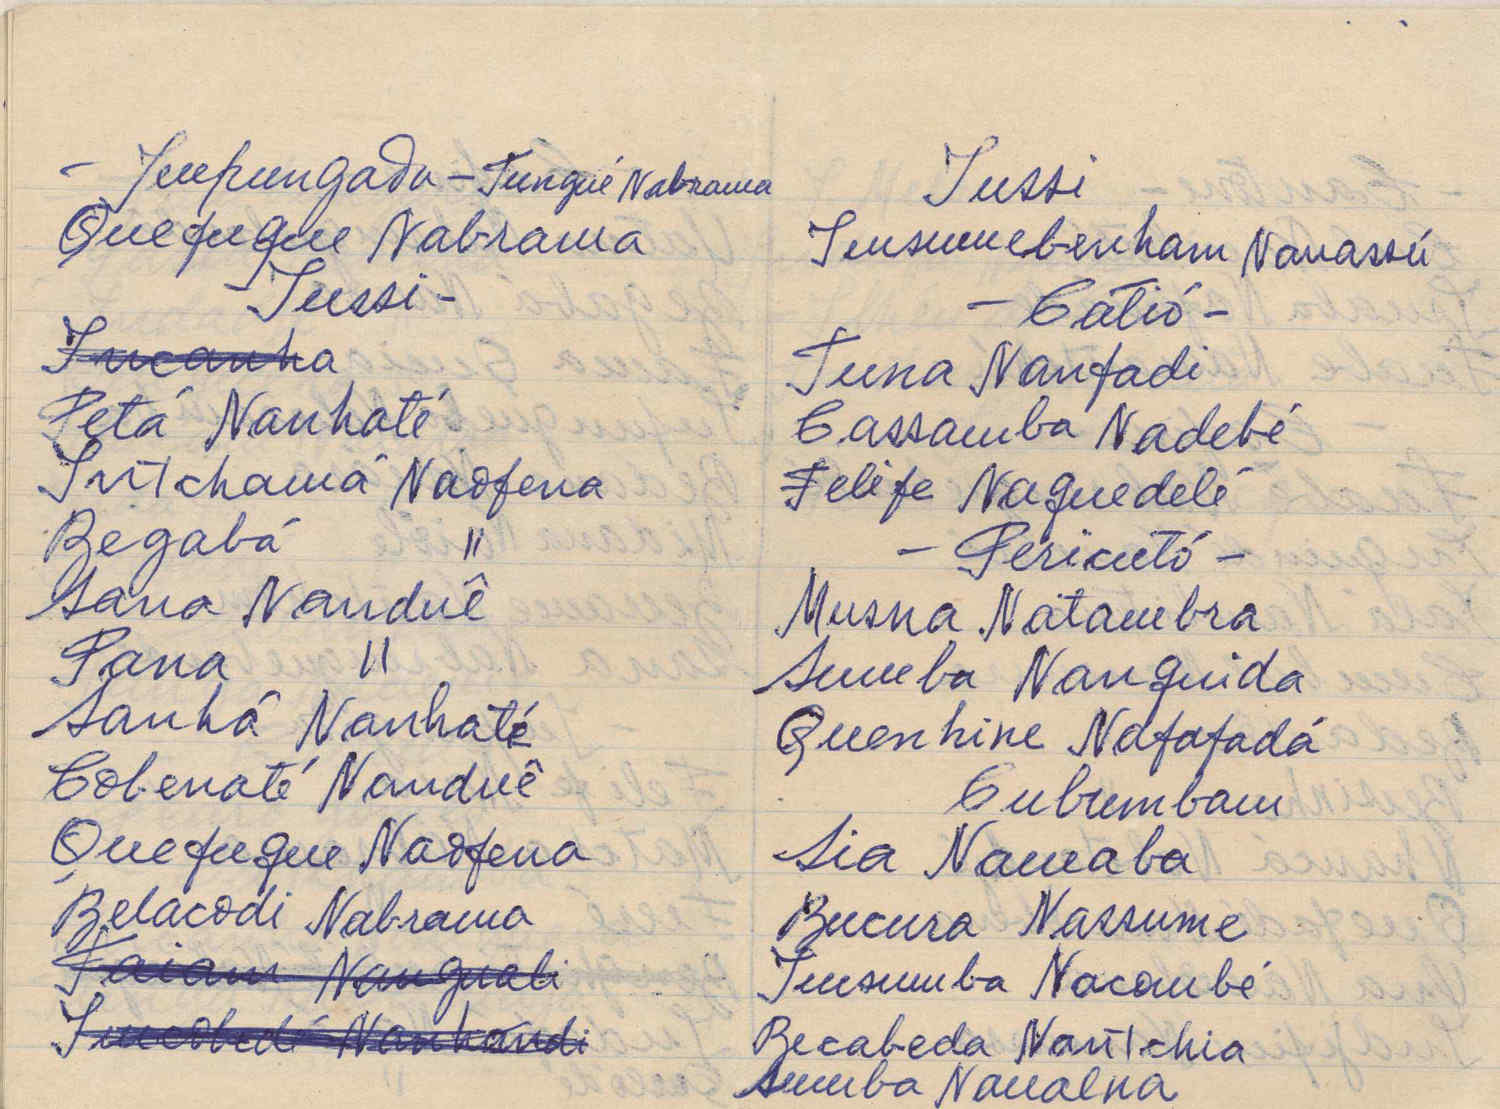 - Impungada - Tungué Nabrama
Quefugue Nabrama
Iussi -
Incanha
Petá Nanhaté
Intchamá Naofena
Begabá "
Sana Nanduê
Pana "
Sanhá Nanhaté
Cobenaté Nanduê
Quefugue Naofena
Belacodi Nabrama
Faiam Nanguali
Incobedé Nanhandi
Iussi
Insumebenham Nanassú
- Catió -
Tuna Nanfadi
Cassamba Nadebé
Felife Naguedelé
- Pericutó -
Musna Natambra
Sumba Nanguida
Quenhine Nafafadá
Cubumbam
Sia Namaba
Bucura Nassume
Insumba Nacombé
Becabeda Nantchia
Sumba Nanalna